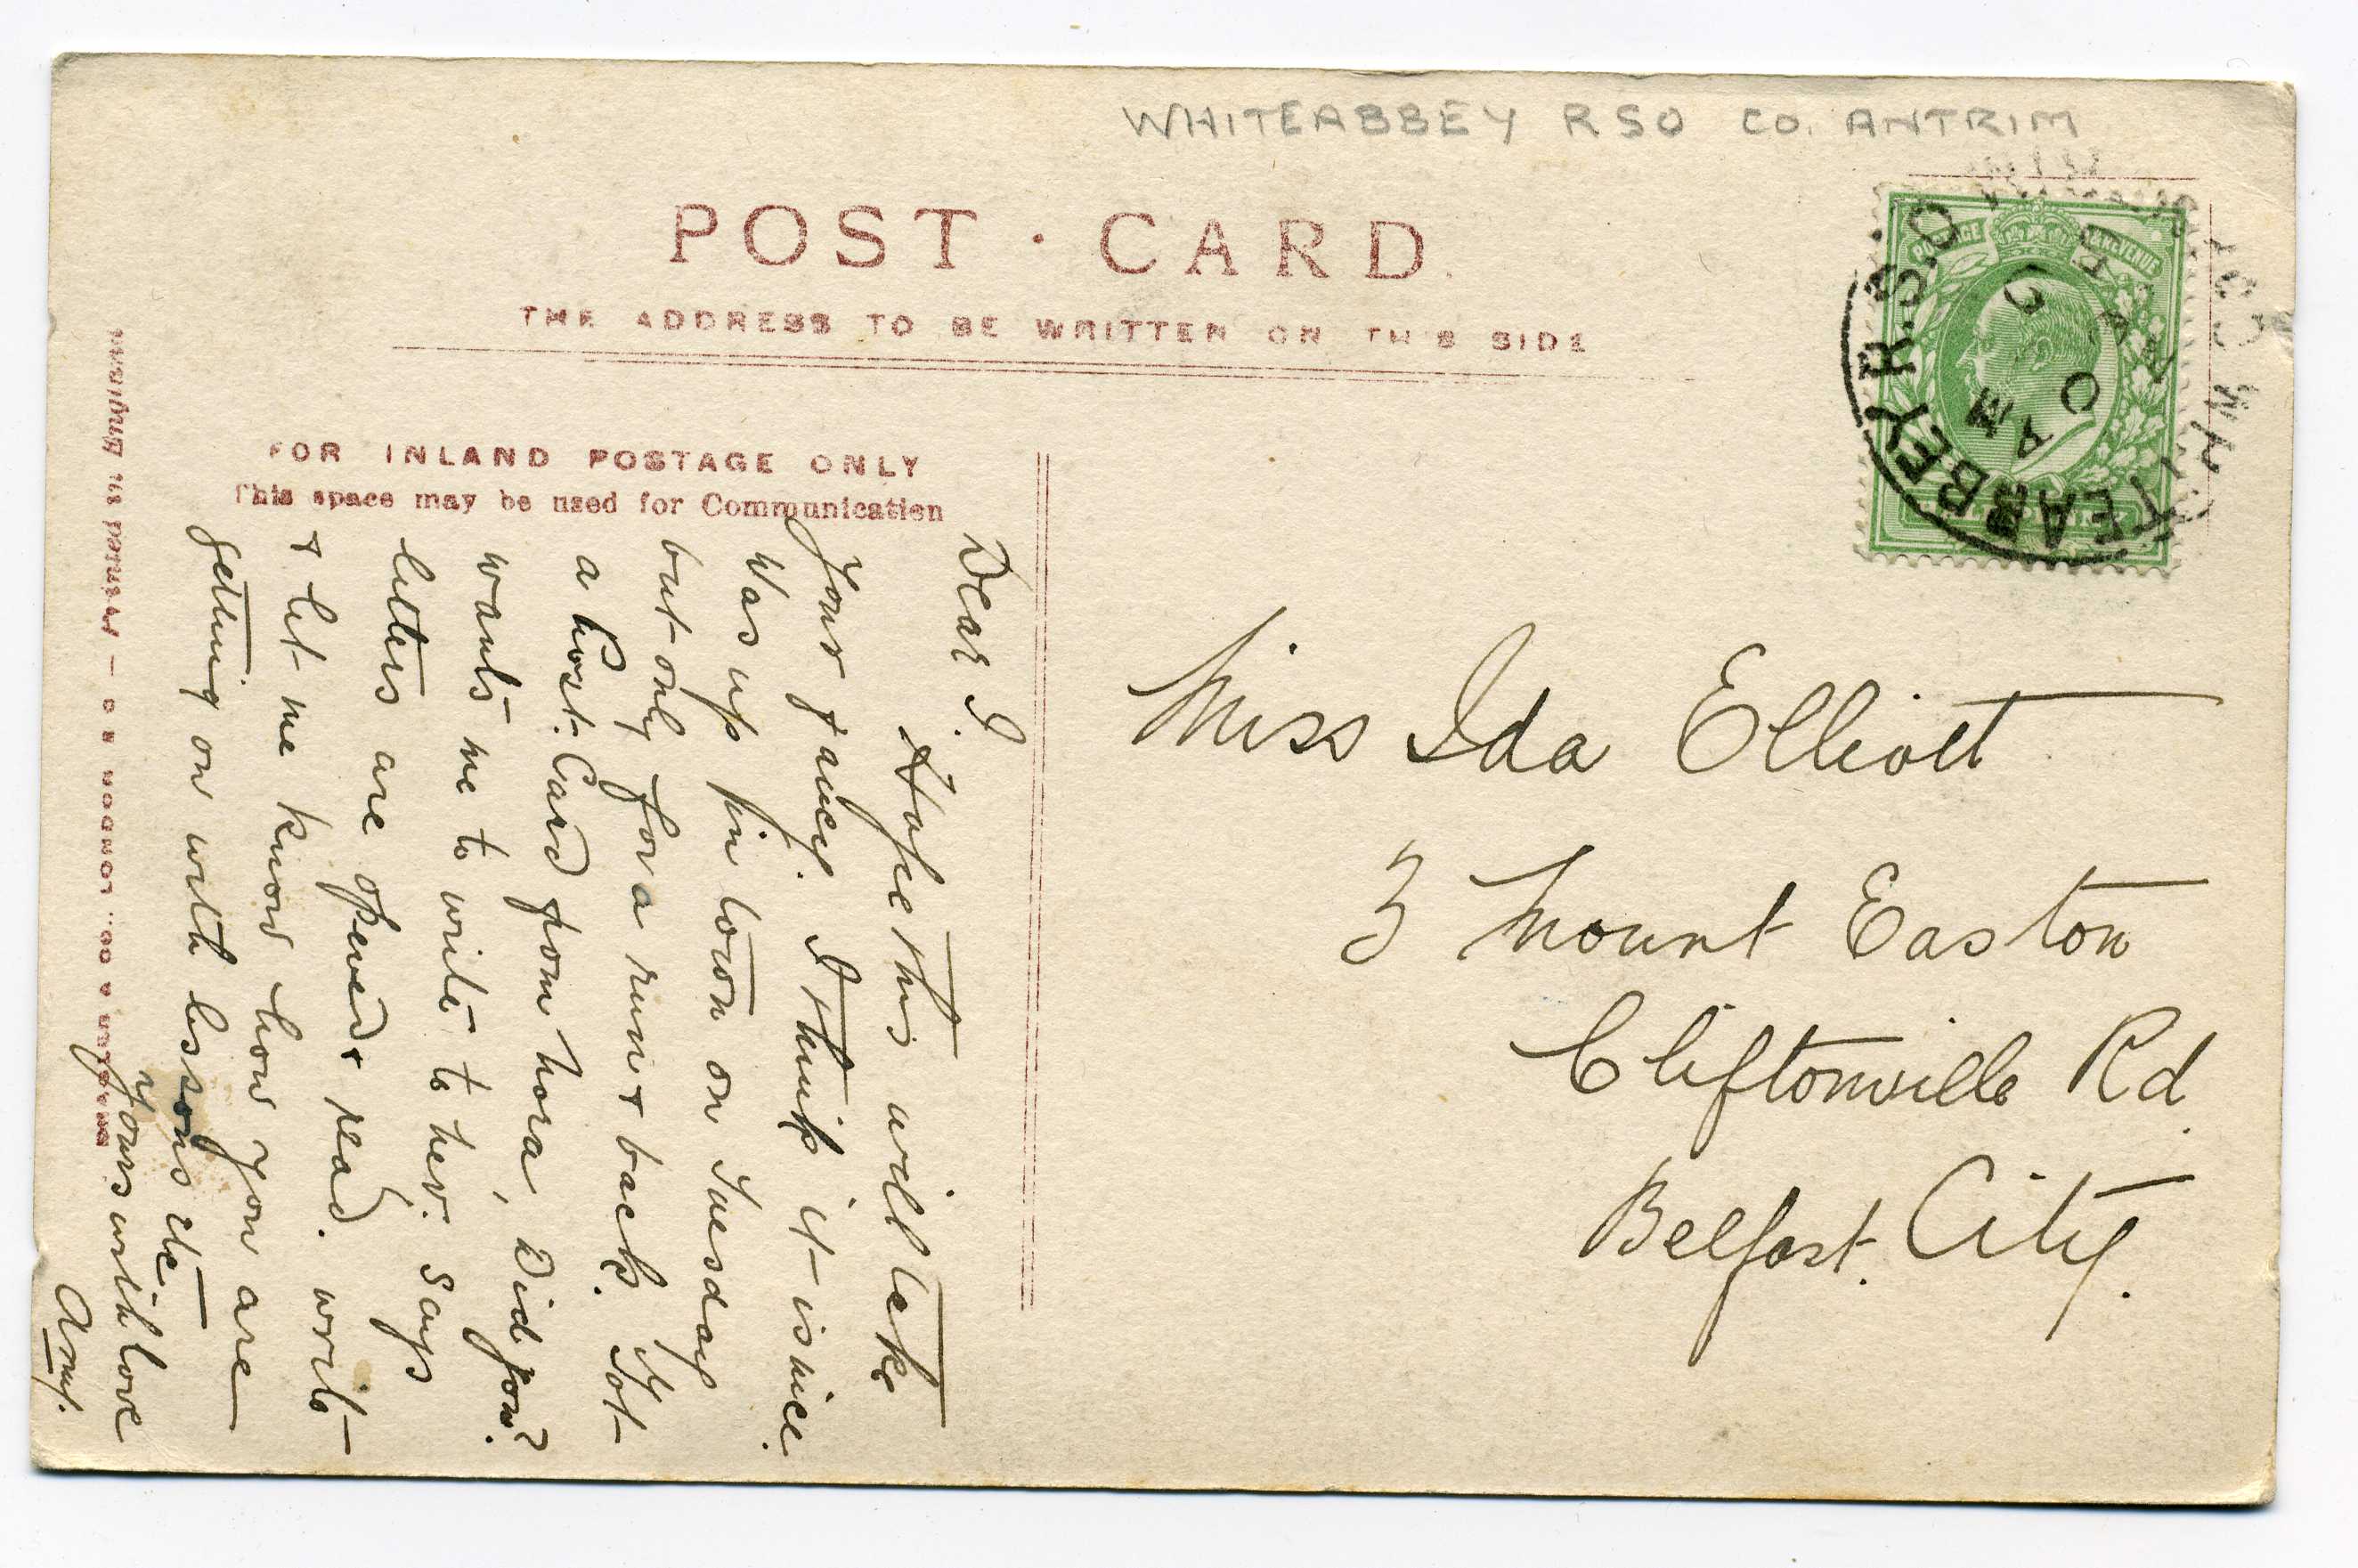 WHITEABBEY RSO CO. ANTRIM
POST · CARD.
THE ADDRESS TO BE WRITTEN ON THIS SIDE
FOR INLAND POSTAGE ONLY
This space may be used for Communication
POSTAGE & REVENUE
TEABBEY R.S.O
AM
Dear I.
Hope this will take
your fancy. I think it is nice.
Was up in town on Tuesday
but only for a run & back. Got
a Post. Card from Nora, Did you?
wants me to write to her. Says
letters are opened & read. write
& let me know how you are
getting on with lessons etc
Yours with love
Amy.
Miss Ida Elliott
3 Mount Easton
Cliftonville Rd.
Belfast. City.
printed in England